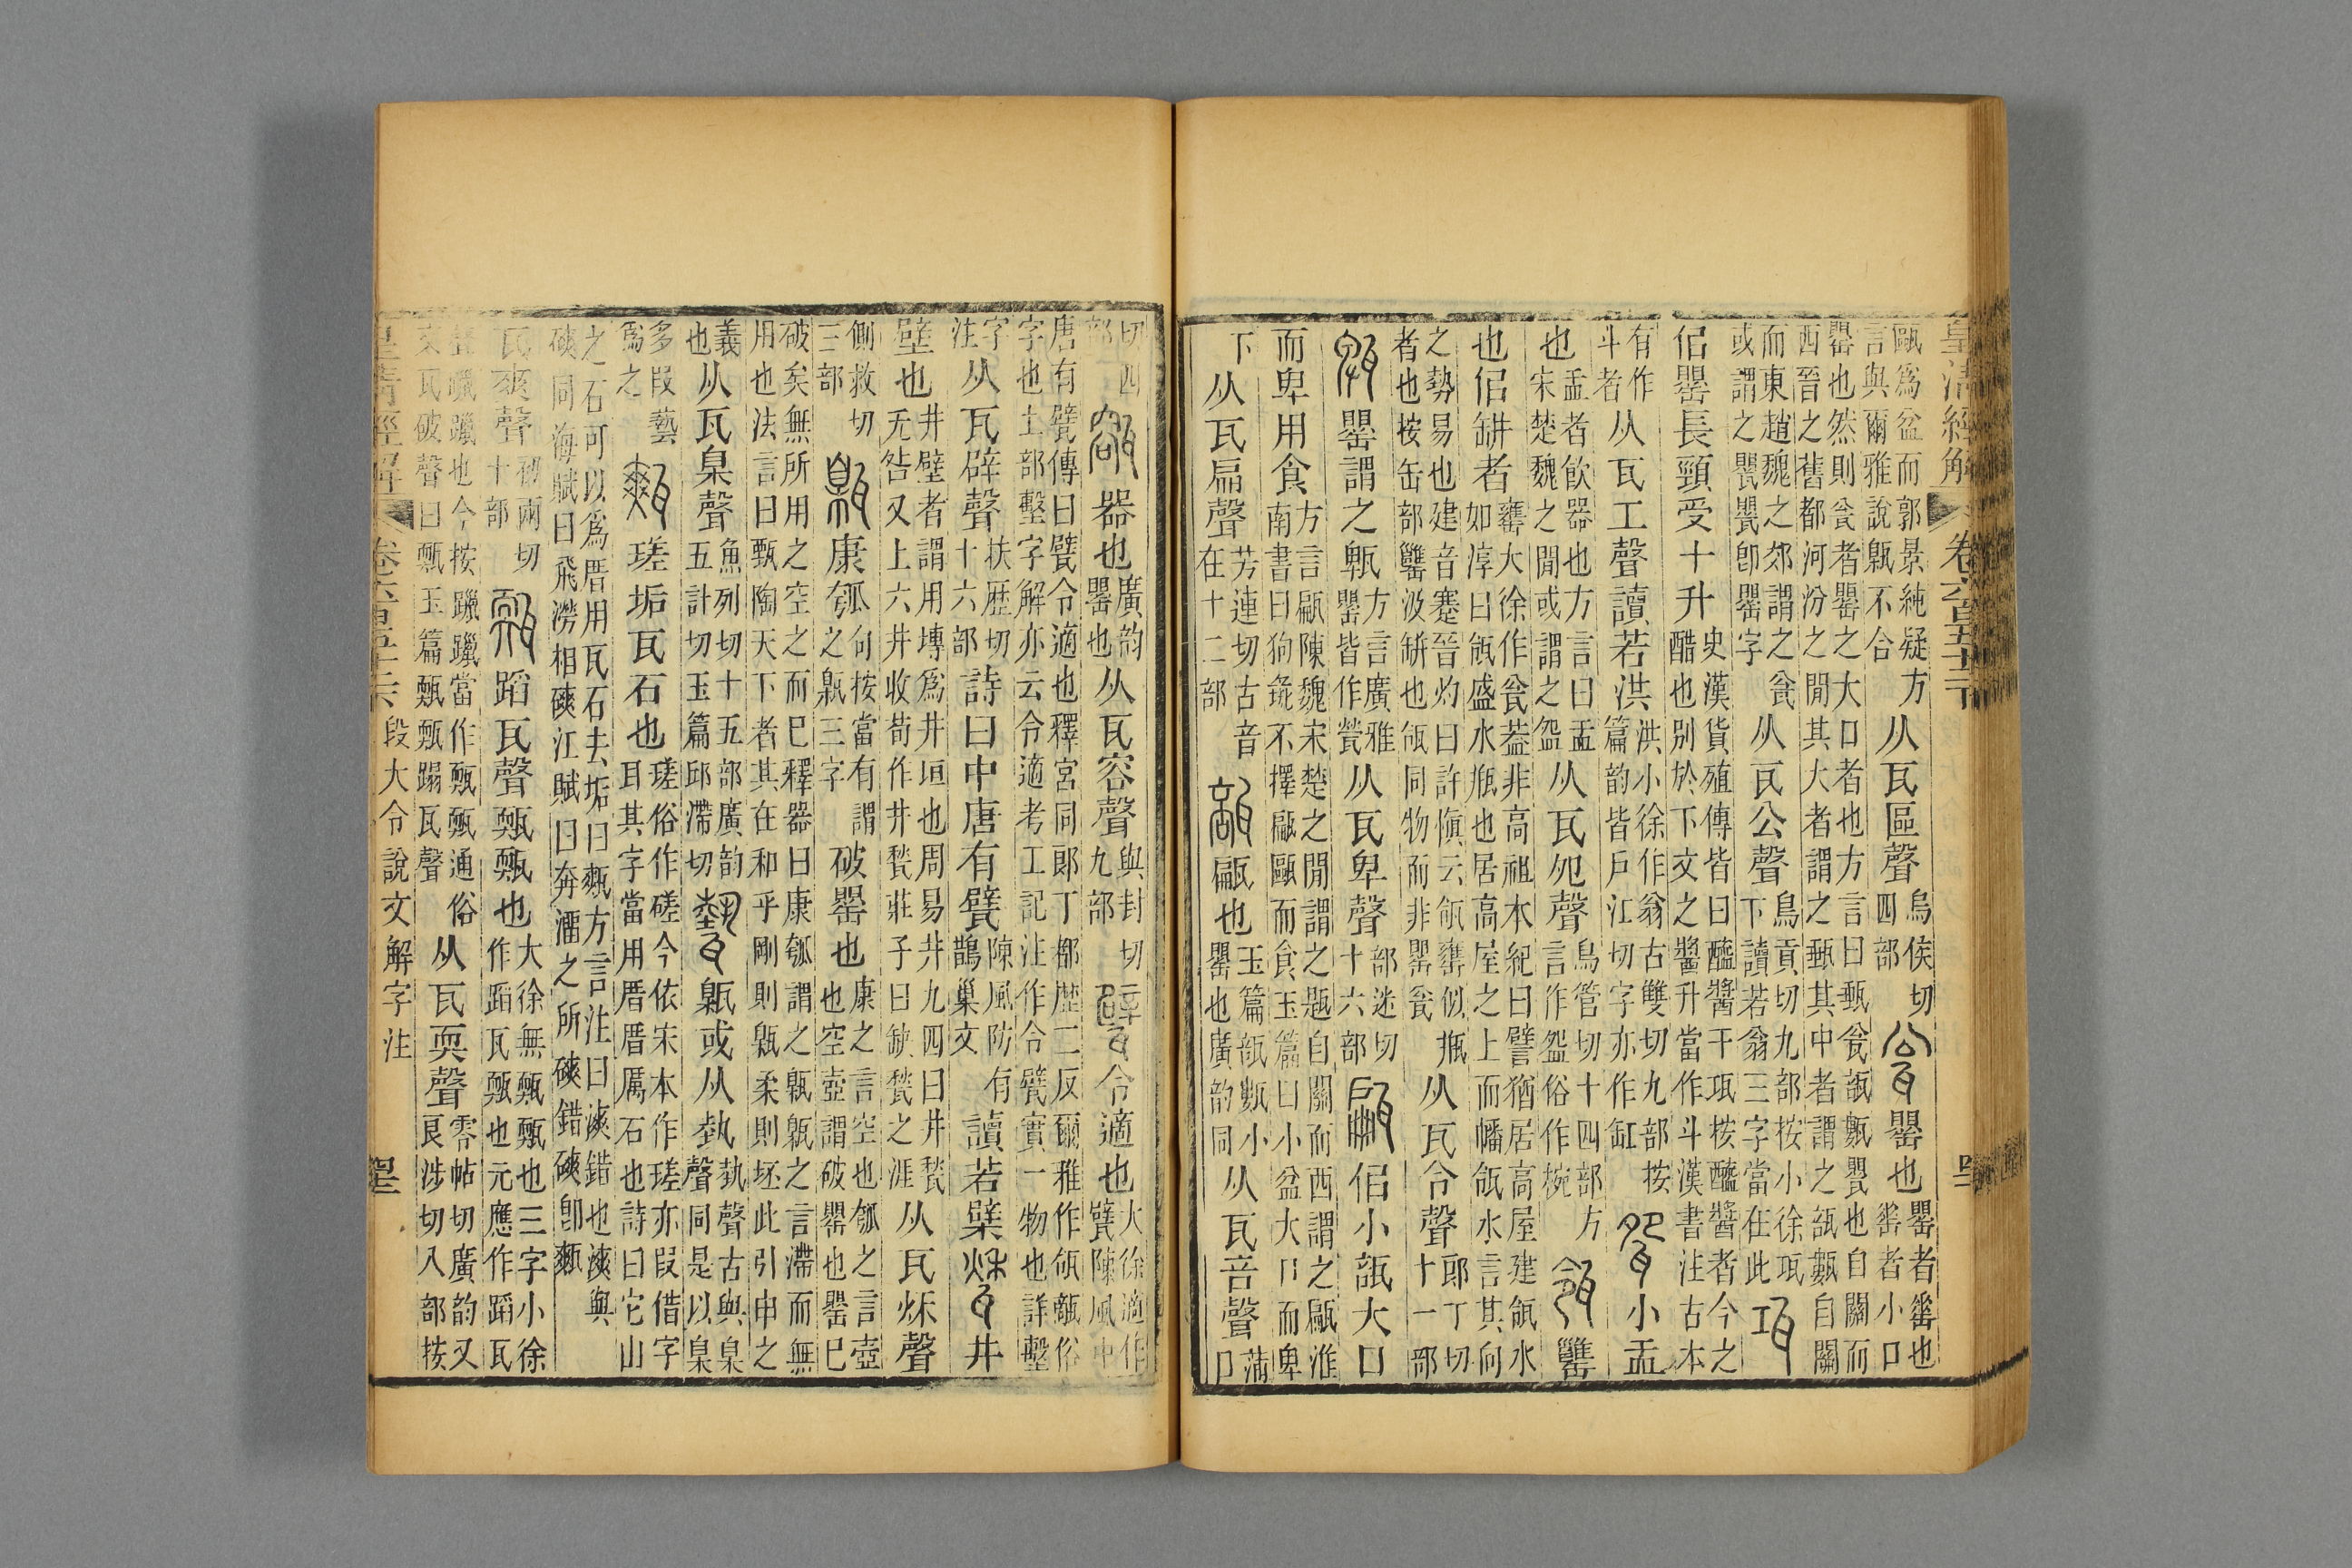 皇清經解 卷六百五十二下
甌爲盆而郭景純疑方言與爾雅說甈不合从瓦區聲烏侯切四部瓮罌也罌者罃也罃者小口
罌也然則瓮者罌之大口者也方言曰瓮瓿甊甖也自關而西晉之舊都河汾之閒其大者謂之其中者謂之瓿甊自關
而東趙魏之郊謂之瓮或謂之甖甖卽罌字从瓦公聲烏貢切九部按小徐瓨下讀若翁三字當在此瓨
佀罌長頸受十升史漢貨殖傳皆曰醯醬千瓨按醯醬者今之醋也別於下文之醬升當作斗漢書注古本
有作斗者从瓦工聲讀若洪洪小徐作翁古雙切九部按篇韵皆戶江切字亦作缸㼝小盂
也盂者飮器也方言曰盂宋楚魏之閒或謂之㿿从瓦夗聲烏管切十四部方言作㿿俗作椀瓴罋
也佀缾者罋大徐作瓮葢非高祖本紀曰譬猶居高屋建瓴水如淳曰瓴盛水甁也居高屋之上而幡瓴水言其向
之勢易也建音蹇晉灼曰許愼云瓴罋似甁者也按缶部罋汲缾也瓴同物而非罌瓮从瓦令聲郎丁切十一部
罌謂之甀方言廣雅罌皆作甇从瓦卑聲部迷切十六部甂佀小瓿大口
而卑用食方言甂陳魏宋楚之閒謂之題自關而西謂之甂淮南書曰狗彘不擇甂甌而食玉篇曰小盆大口而卑
下从瓦扁聲芳連切古音在十二部瓿甂也玉篇瓿甊小罌也廣韵同从瓦咅聲蒲口
切四部㼸器也廣韵罌也从瓦容聲與封切九部甓令適也大徐適作甓陳風中
唐有甓傳曰甓令適也釋宮同郞丁都歴二反爾雅作瓴甋俗字也土部墼字解亦云令適考工記注作令甓實一物也詳墼
字注从瓦辟聲扶歴切十六部詩曰中唐有甓陳風防有鵲巢文讀若檗甃井
壁也井壁者謂用塼爲井垣也周易井九四曰井甃无咎又上六井收荀作井甃莊子曰缺甃之涯从瓦秌聲
側救切三部甈康瓠句按當有謂之甈三字破罌也康之言空也瓠之言壺也空壺謂破罌也罌已
破矣無所用之空之而已釋器曰康瓠謂之甈甈之言滯而無用也法言曰甄陶天下者其在和乎剛則甈柔則坯此引申之
義也从瓦臬聲魚列切十五部廣韵五計切玉篇邱滯切甈或从埶埶聲古與臬聲同是以臬
多叚藝爲之㼽瑳垢瓦石也瑳俗作磋今依宋本作瑳亦叚借字耳其字當用厝厝厲石也詩曰它山
之石可以爲厝用瓦石去垢曰㼽方言注曰漺錯也漺與磢同海賦曰飛澇相磢江賦曰奔溜之所磢錯磢卽㼽
瓦爽聲初兩切十部蹈瓦聲也大徐無也三字小徐作蹈瓦也元應作蹈瓦
聲躐躐也今按躐躐當作通俗文瓦破聲曰玉篇蹋瓦聲从瓦耎聲零帖切廣韵又良涉切入部按
皇清經解 卷六百五十二下 段大令說文解字注